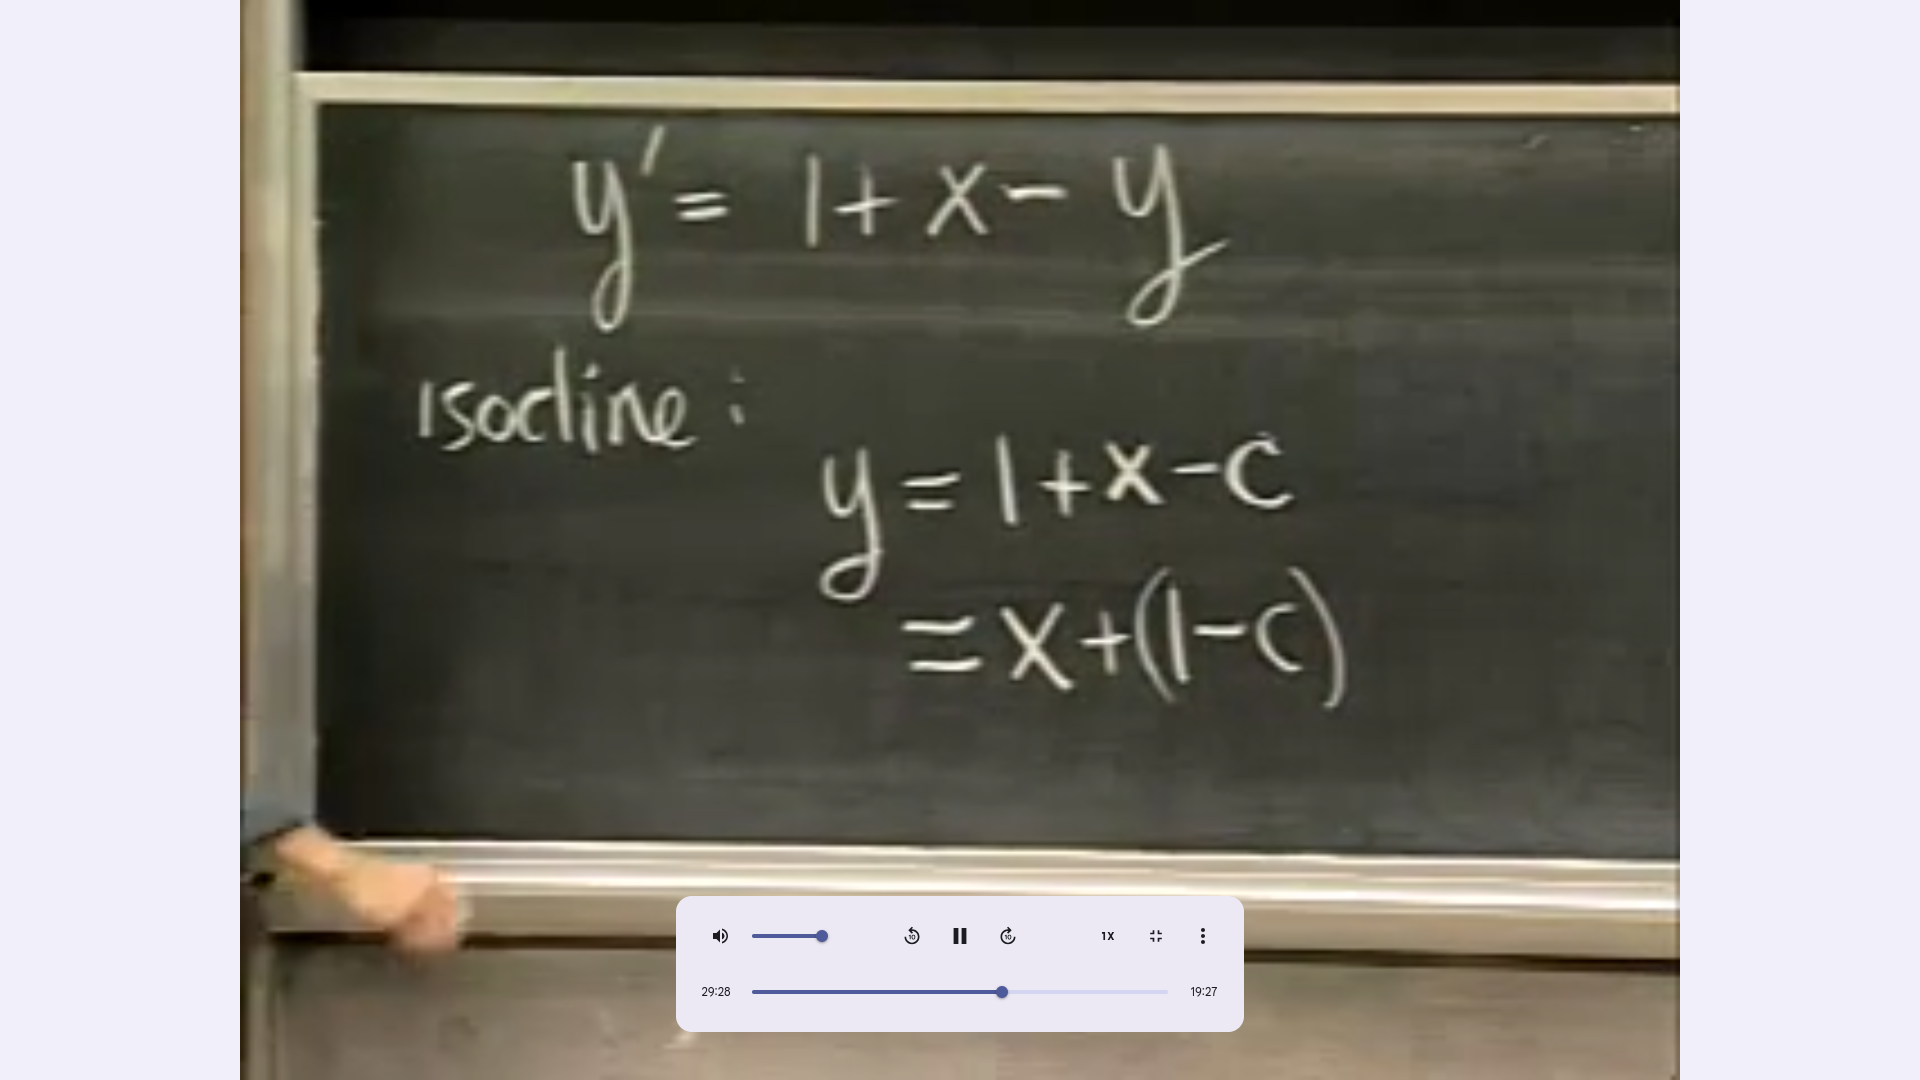 y' = 1 + x - y
isocline :
y = 1 + x - c
= x + (1 - c)
10
10
1X
29:28
19:27